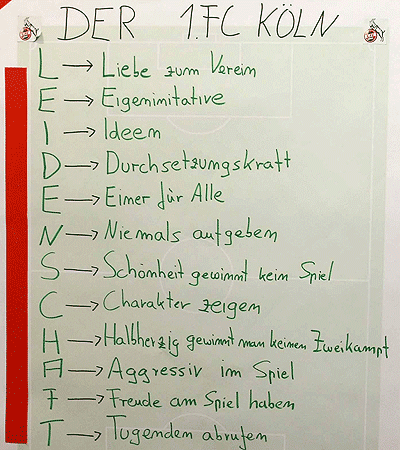 DER 1.FC KÖLN
L → Liebe zum Verein
E → Eigeninitative
I → Ideen
D → Durchsetzungskraft
E → Einer für Alle
N → Niemals aufgeben
S → Schönheit gewinnt kein Spiel
C → Charakter zeigen
H → Halbherzig gewinnt man keinen Zweikampf
A → Aggressiv im Spiel
F → Freude am Spiel haben
T → Tugenden abrufen